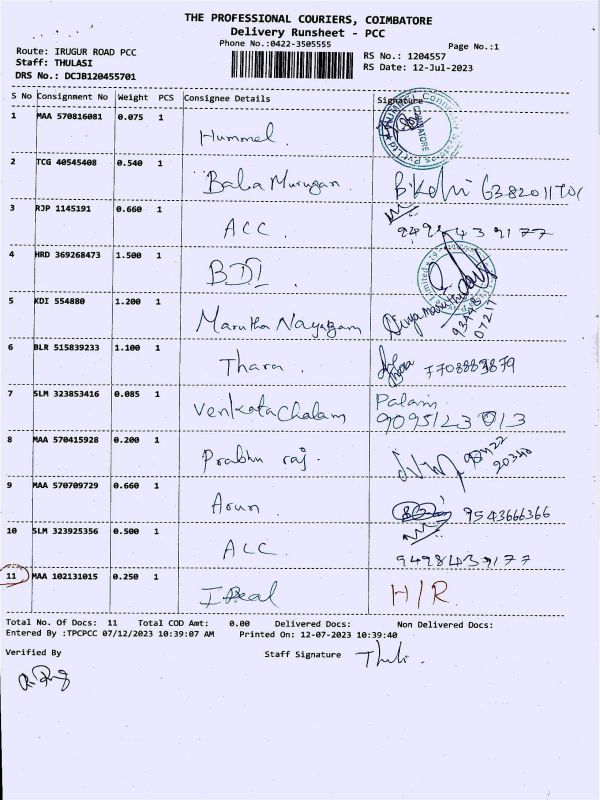 THE PROFESSIONAL COURIERS, COIMBATORE
Delivery Runsheet - PCC
Phone No.:0422-3505555
Page No.:1
Route: IRUGUR ROAD PCC
Staff: THULASI
DRS No.: DCJB120455701
RS No.: 1204557
RS Date: 12-Jul-2023
S No Consignment No Weight PCS Consignee Details Signature
1 MAA 570816081 0.075 1
Hummel
COIMBATORE
2 TCG 40545408 0.540 1
Baba Murugan
3 RJP 1145191 0.660 1
ACC
9498439177
4 HRD 369268473 1.500 1
BDI
5 KDI 554880 1.200 1
Marutha Nayagam
6 BLR 515839233 1.100 1
Thara
7708883879
7 SLM 323853416 0.085 1
Venkatachalam
Palani
9095123013
8 MAA 570415928 0.200 1
Prabhu raj
9 MAA 570709729 0.660 1
Arun
9543666366
10 SLM 323925356 0.500 1
ACC
9498439177
11 MAA 102131015 0.250 1
IReal H/R
Total No. Of Docs: 11 Total COD Amt: 0.00 Delivered Docs: Non Delivered Docs:
Entered By :TPCPCC 07/12/2023 10:39:07 AM Printed On: 12-07-2023 10:39:40
Verified By Staff Signature